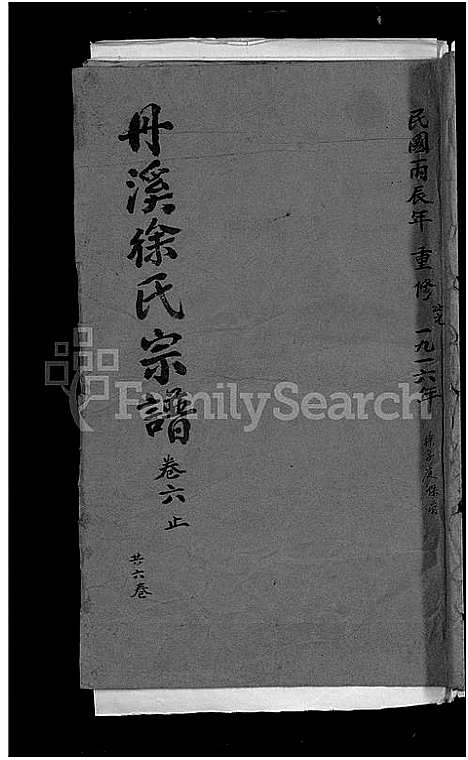 民國丙辰年 重修 一九一六年
丹溪徐氏宗譜 卷六止
共六卷
FamilySearch